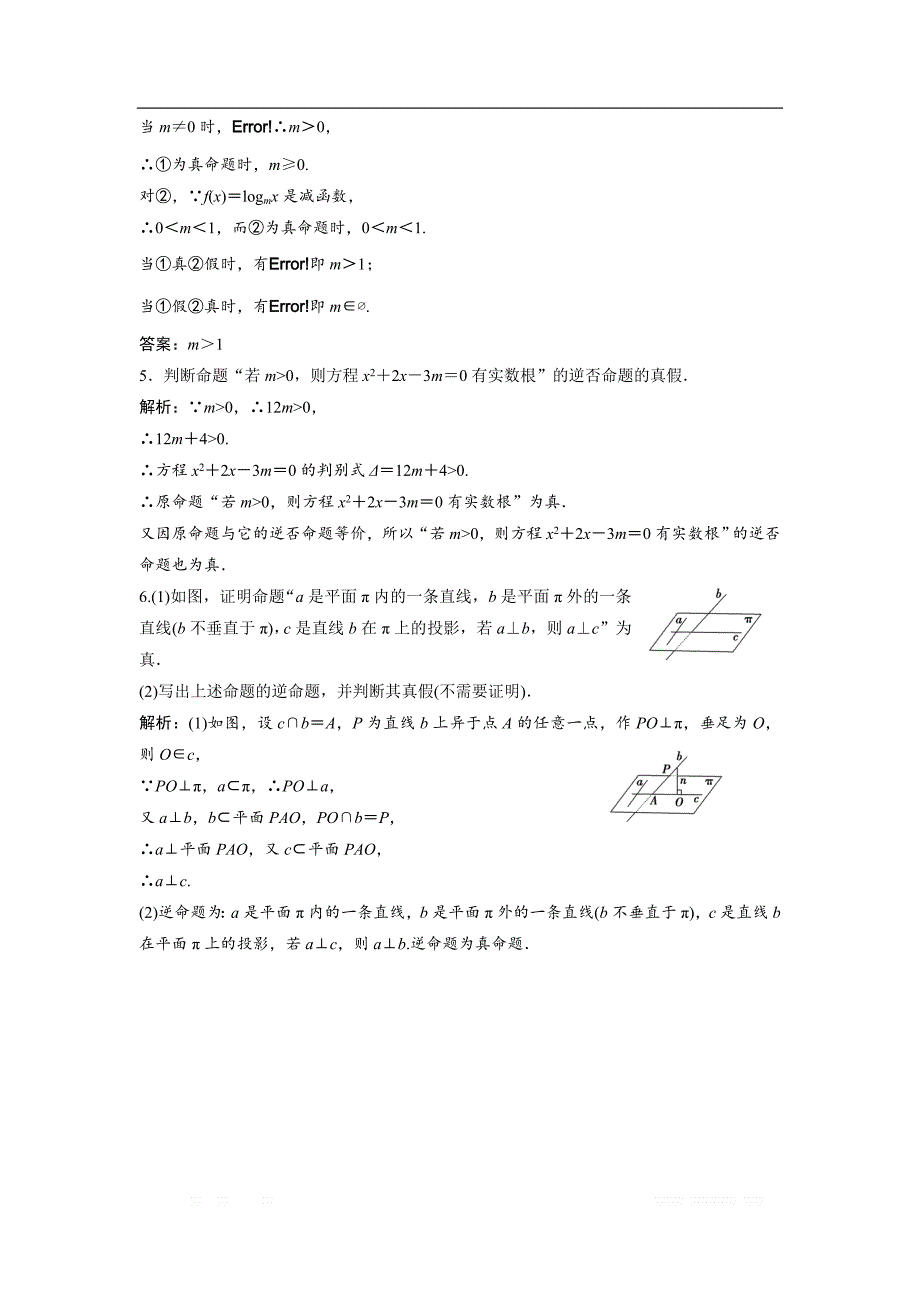 当 m≠0 时，Error!∴m＞0，
∴①为真命题时，m≥0.
对②，∵f(x)＝logmx 是减函数，
∴0＜m＜1，而②为真命题时，0＜m＜1.
当①真②假时，有Error!即 m＞1；
当①假②真时，有Error!即 m∈∅.
答案：m＞1
5．判断命题“若 m>0，则方程 x2＋2x－3m＝0 有实数根”的逆否命题的真假．
解析：∵m>0，∴12m>0，
∴12m＋4>0.
∴方程 x2＋2x－3m＝0 的判别式 Δ＝12m＋4>0.
∴原命题“若 m>0，则方程 x2＋2x－3m＝0 有实数根”为真．
又因原命题与它的逆否命题等价，所以“若 m>0，则方程 x2＋2x－3m＝0 有实数根”的逆否
命题也为真．
6.(1)如图，证明命题“a 是平面 π 内的一条直线，b 是平面 π 外的一条
直线(b 不垂直于 π)，c 是直线 b 在 π 上的投影，若 a⊥b，则 a⊥c”为
真．
b
a
π
c
(2)写出上述命题的逆命题，并判断其真假(不需要证明)．
解析：(1)如图，设 c∩b＝A，P 为直线 b 上异于点 A 的任意一点，作 PO⊥π，垂足为 O，
则 O∈c，
∵PO⊥π，a⊂π，∴PO⊥a，
又 a⊥b，b⊂平面 PAO，PO∩b＝P，
∴a⊥平面 PAO，又 c⊂平面 PAO，
∴a⊥c.
b
P
a
n
π
A
O
c
(2)逆命题为：a 是平面 π 内的一条直线，b 是平面 π 外的一条直线(b 不垂直于 π)，c 是直线 b
在平面 π 上的投影，若 a⊥c，则 a⊥b.逆命题为真命题．